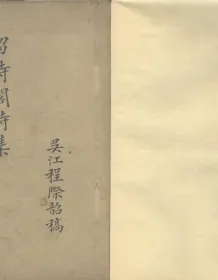 留詩閣詩集
吳江程際韶稿